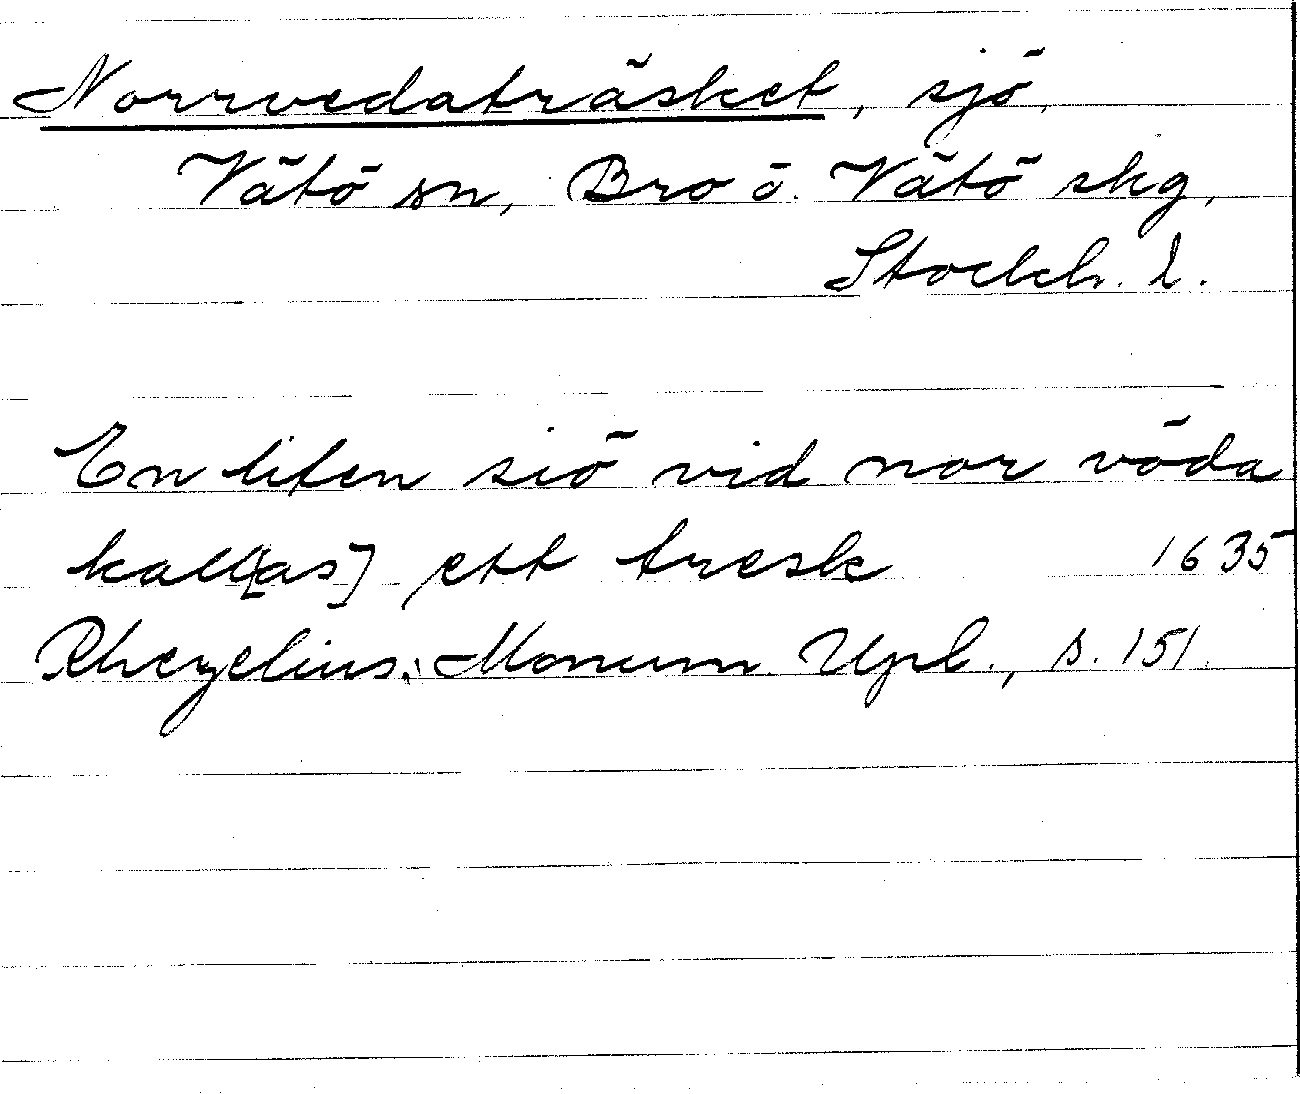 Norrvedaträsket, sjö.
Vätö sn, Bro o. Vätö skg,
Stockh. l.
En liten siö vid nor vöda
kall[as] ett tresk 1635
Rhezelius, Monum. Upl., s. 151.